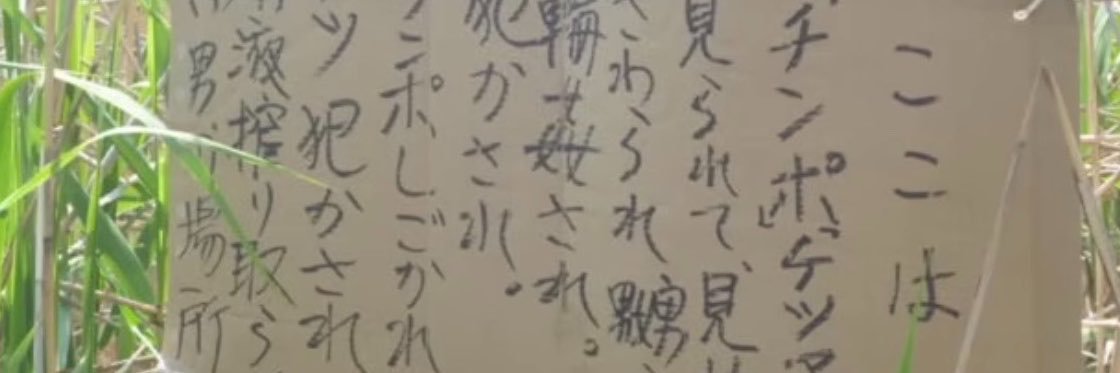 ここは
チンポ、ケツ
見られて、見
さわられ嬲
輪姦され。
犯かされ。
ンポ、しごかれ
ツ犯かされ
液搾り取ら
男
場所